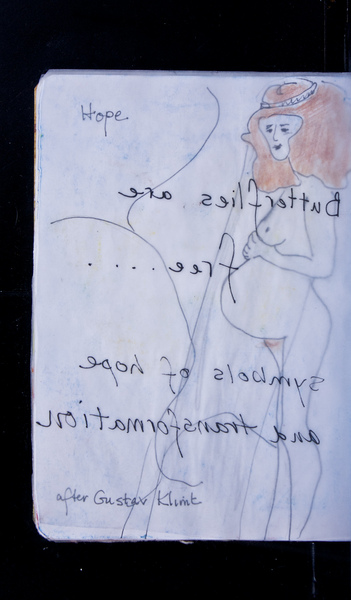 Hope
Butterflies are
free.....
symbols of hope
and transformation
after Gustav Klimt